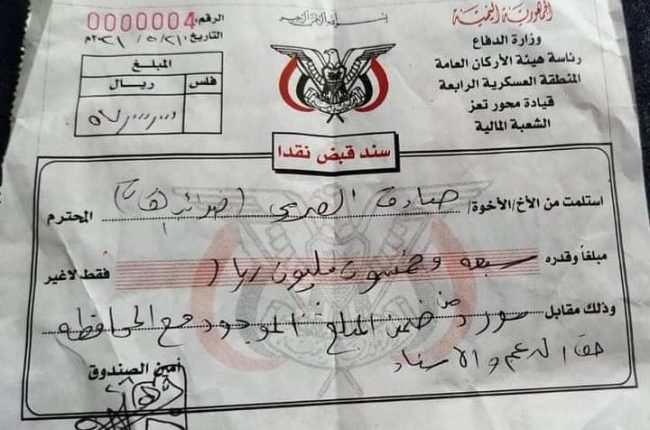 الجمهورية اليمنية
وزارة الدفاع
رئاسة هيئة الأركان العامة
المنطقة العسكرية الرابعة
قيادة محور تعز
الشعبة المالية
الرقم: 0000004
التاريخ: ٢٠٢١/٥/٢١م
المبلغ
ريال فلس
سند قبض نقدا
استلمت من الأخ/الأخوة/ صادق المحترم
مبلغاً وقدره سبعه وخمسون مليون ريال فقط لاغير
وذلك مقابل من ضمن المبلغ الموجود مع المحافظه
حق الدعم والاسناد
أمين الصندوق